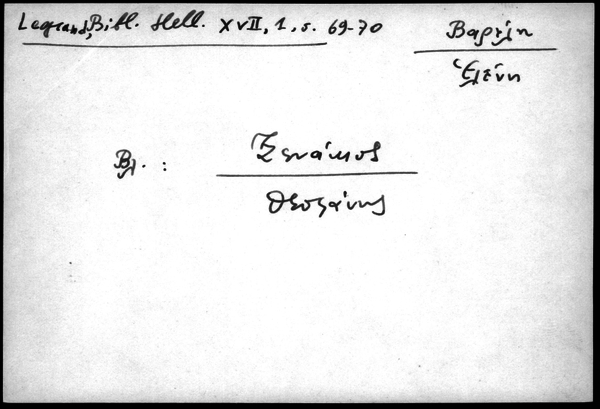 Legrand, Bibl. Hell. XVII, 1, s. 69-70
Ἑλένη
Βλ. : Ξενάκιος
Θεοφάνης